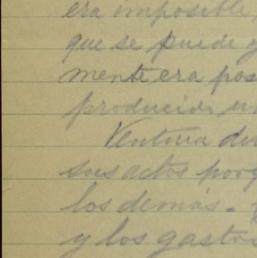 era imposible
que se puede y
mente era pos
producir en
Ventura di
sus actos porq
los demás -
y los gastos